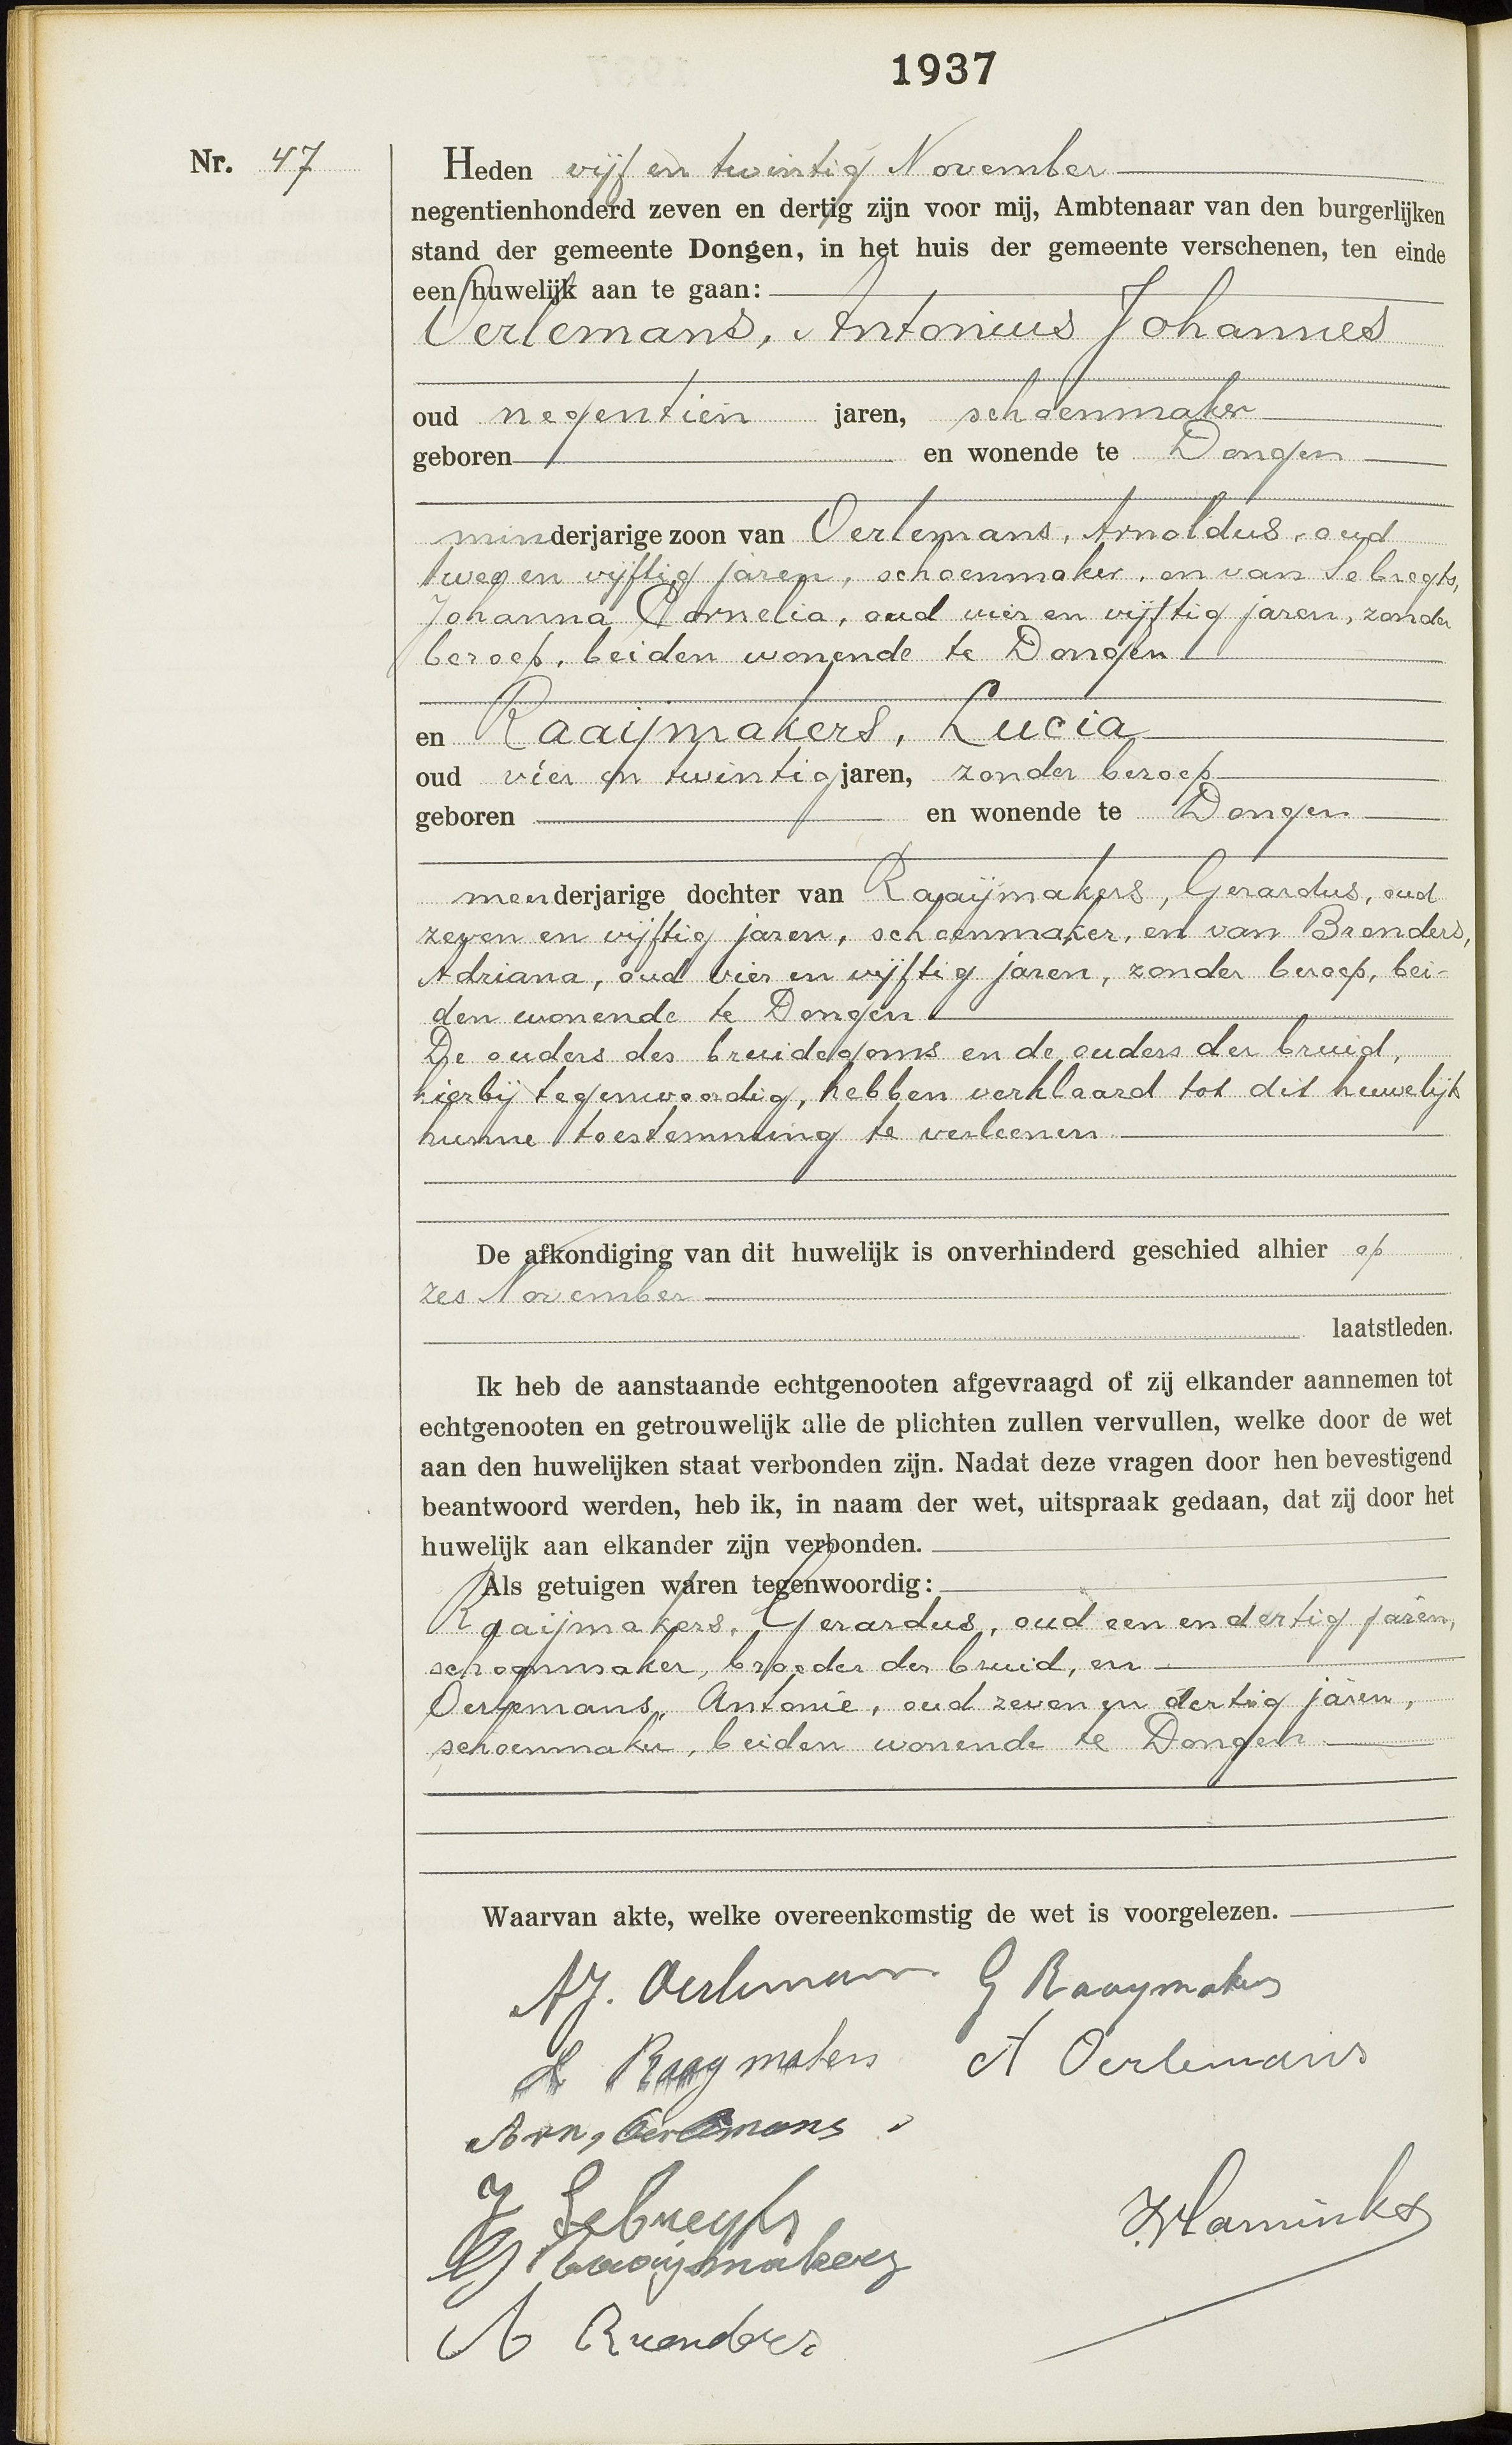 1937
Nr. 47
Heden vijf en twintig November
negentienhonderd zeven en dertig zijn voor mij, Ambtenaar van den burgerlijken
stand der gemeente Dongen, in het huis der gemeente verschenen, ten einde
een huwelijk aan te gaan:
Oerlemans, Antonius Johannes
oud negentien jaren, schoenmaker
geboren en wonende te Dongen
minderjarige zoon van Oerlemans, Arnoldus, oud
twee en vijftig jaren, schoenmaker, en van Sebregts,
Johanna Cornelia, oud vier en vijftig jaren, zonder
beroep, beiden wonende te Dongen
en Raaijmakers, Lucia
oud vier en twintig jaren, zonder beroep
geboren en wonende te Dongen
meerderjarige dochter van Raaijmakers, Gerardus, oud
zeven en vijftig jaren, schoenmaker, en van Brenders,
Adriana, oud vier en vijftig jaren, zonder beroep, bei-
den wonende te Dongen
De ouders des bruidegoms en de ouders der bruid,
hierbij tegenwoordig, hebben verklaard tot dit huwelijk
hunne toestemming te verleenen
De afkondiging van dit huwelijk is onverhinderd geschied alhier op
zes November
laatstleden.
Ik heb de aanstaande echtgenooten afgevraagd of zij elkander aannemen tot
echtgenooten en getrouwelijk alle de plichten zullen vervullen, welke door de wet
aan den huwelijken staat verbonden zijn. Nadat deze vragen door hen bevestigend
beantwoord werden, heb ik, in naam der wet, uitspraak gedaan, dat zij door het
huwelijk aan elkander zijn verbonden.
Als getuigen waren tegenwoordig:
Raaijmakers, Gerardus, oud een en dertig jaren,
schoenmaker, broeder der bruid, en
Oerlemans, Antonie, oud zeven en dertig jaren,
schoenmaker, beiden wonende te Dongen
Waarvan akte, welke overeenkomstig de wet is voorgelezen.
AJ. Oerlemans G Raaymakers
L Raaymakers A Oerlemans
Arn, Oerlemans
J Sebregts
G Raaijmakers
A Brenders